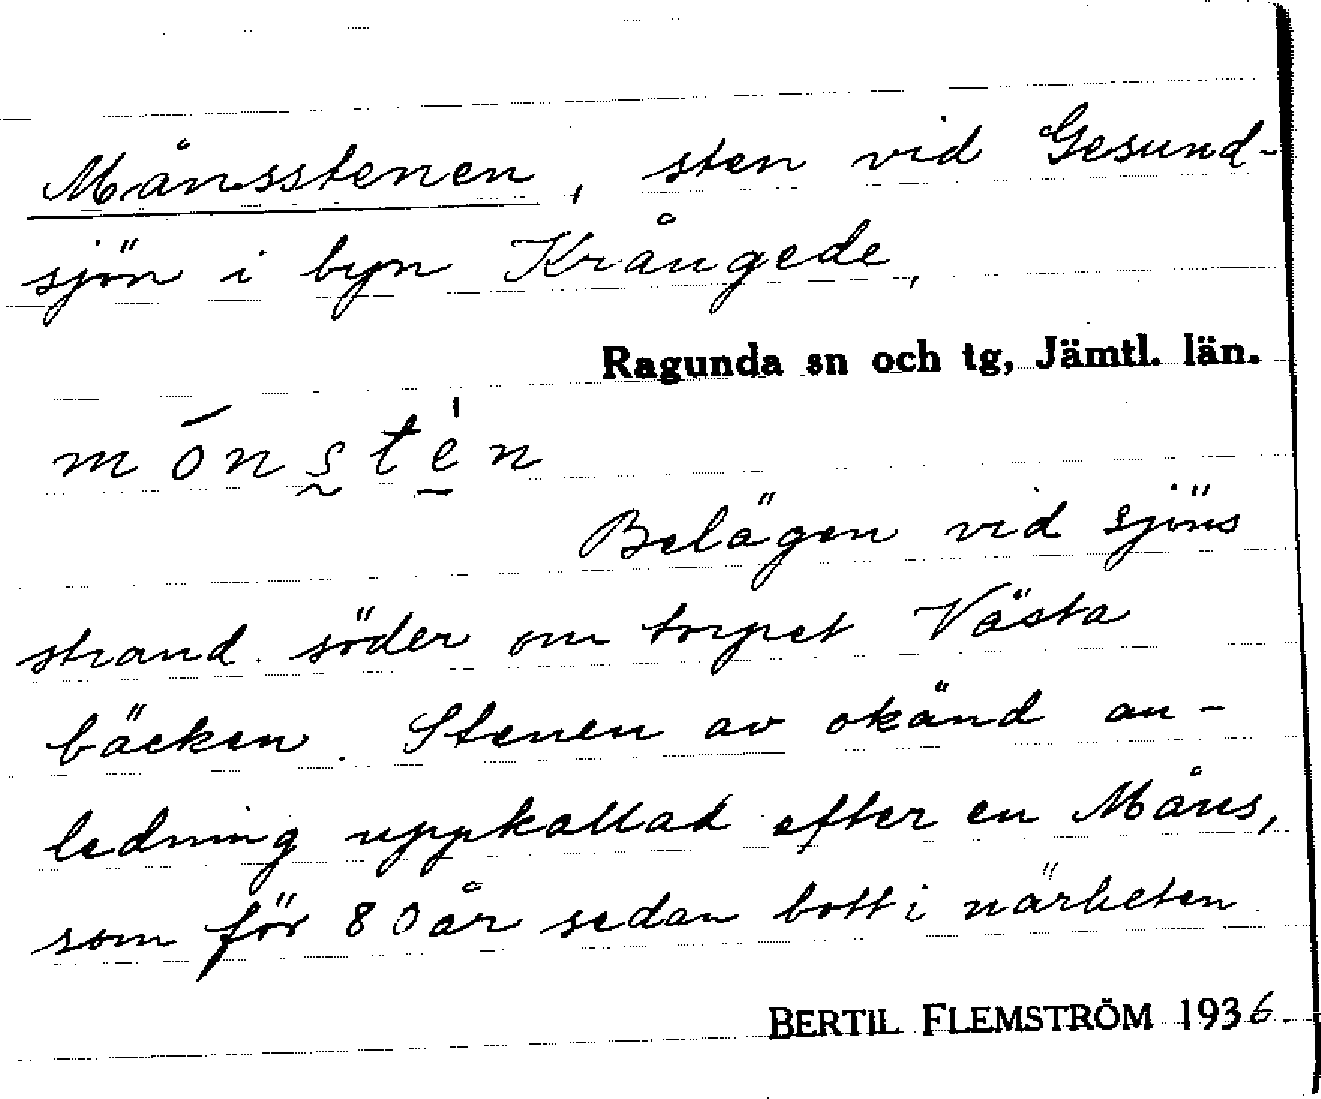 Månsstenen, sten vid Gesund-
sjön i byn Krångede,
Ragunda sn och tg, Jämtl. län.
móns̰tè̱n
Belägen vid sjöns
strand söder om torpet Västa
bäcken. Stenen av okänd an-
ledning uppkallad efter en Måns,
som för 80 år sedan bott i närheten
BERTIL FLEMSTRÖM 1936